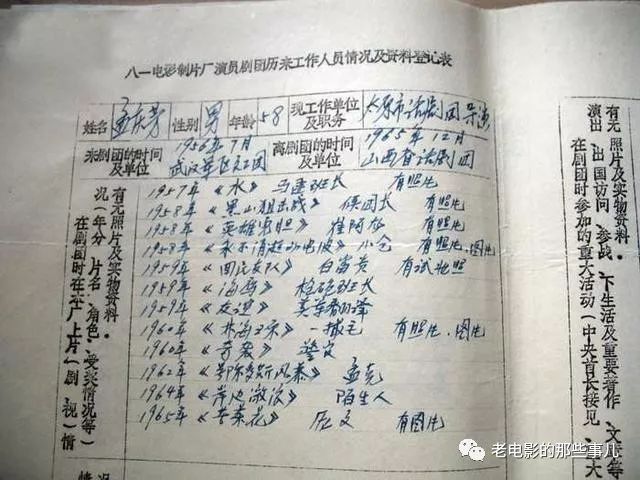 八一电影制片厂演员剧团历来工作人员情况及资料登记表
姓名 孟庆芳 性别 男 年龄 58 现工作单位及职务 太原市话剧团 导演
来剧团的时间及单位 1956年7月 武汉军区文工团 离剧团的时间及单位 1965年12月 山西省话剧团
在剧团时在本厂上片(剧 视)情
况(年分 片名 角色 受奖情况等)
有无照片及实物资料
1957年《水》 马连班长 有照片
1958年《黑山阻击战》 侯团长 有照片
1958年《英雄虎胆》 崔阿谷 有照片
1958年《永不消逝的电波》小仓 有照片,图片
1959年《回民支队》 白富贵 有试妆照
1959年《海鹰》 枪炮班长
1959年《友谊》
1960年《林海雪原》一撮毛 有照片、图片
1960年《奇袭》 警官
1962年《鄂尔多斯风暴》 孟克
1964年《岸边激浪》 陌生人
1965年《苦菜花》 有图片
在剧团时参加的重大活动(中央首长接见
演出 出国访问 参战 下生活及重要著作 文
有无照片及实物资料
老电影的那些事儿